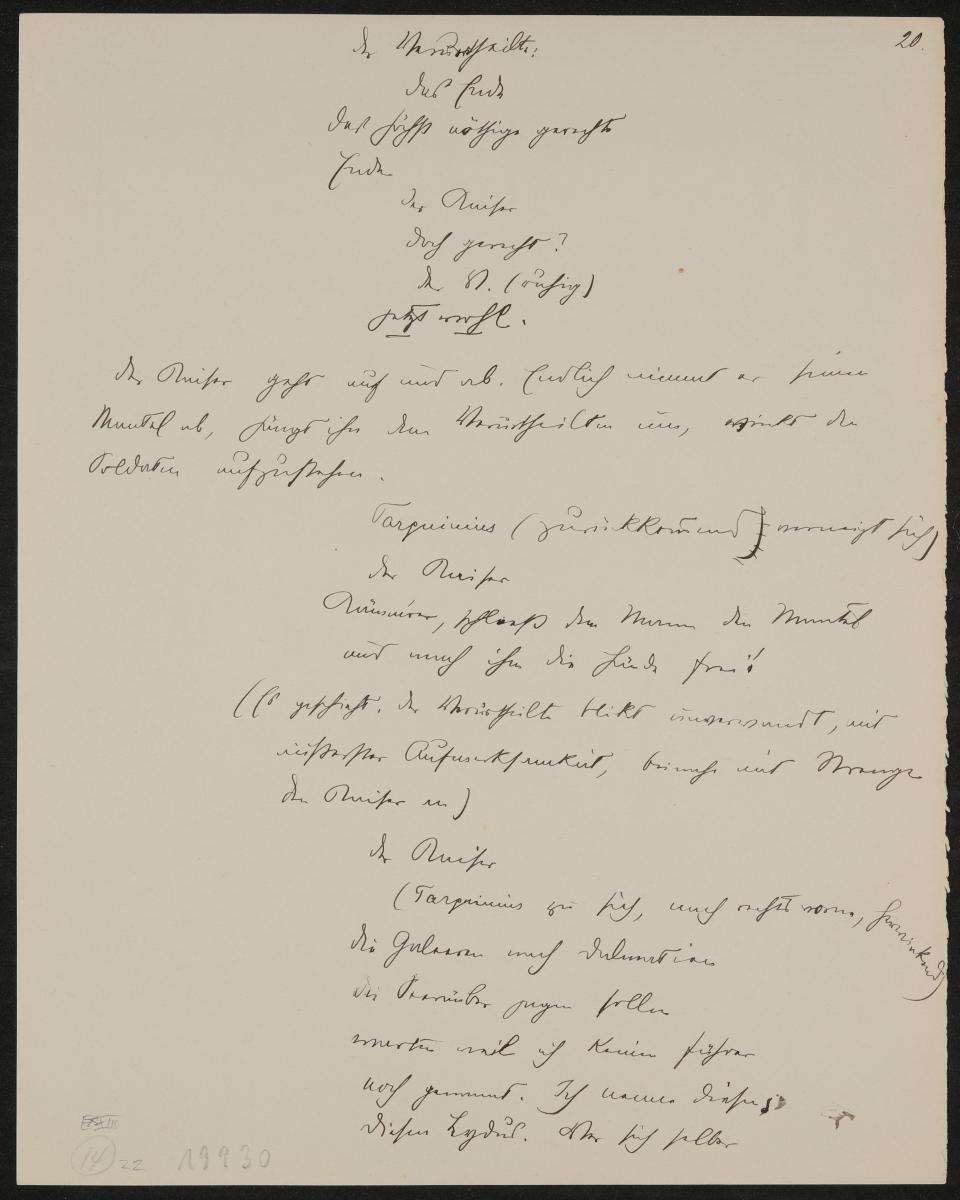 20.
der Verurtheilte:
das Ende
das höchst nöthige gerechte
Ende
der Kaiser
doch gerecht?
der V. (ruhig)
jetzt wohl.
der Kaiser geht auf und ab. Endlich nimmt er seinen
Mantel ab, hängt ihn dem Verurtheilten um, winkt den
Soldaten aufzustehen.
Tarquinius (zurückkommend) verneigt sich)
der Kaiser
Kämmerer, schliess dem Mann den Mantel
und mach ihm die Hände frei!
(Es geschieht. der Verurtheilte blickt unverwandt, mit
äußerster Aufmerksamkeit, beinahe mit Strenge
den Kaiser an)
der Kaiser
(Tarquinius zu sich, nach rechts vorne, herwinkend)
die Galeeren nach Dalmatien
die Seeräuber jagen sollen
warten weil ich keinen Führer
noch genannt. Ich nenne diesen,
diesen Lydus. Wer sich selber
14 22 19930